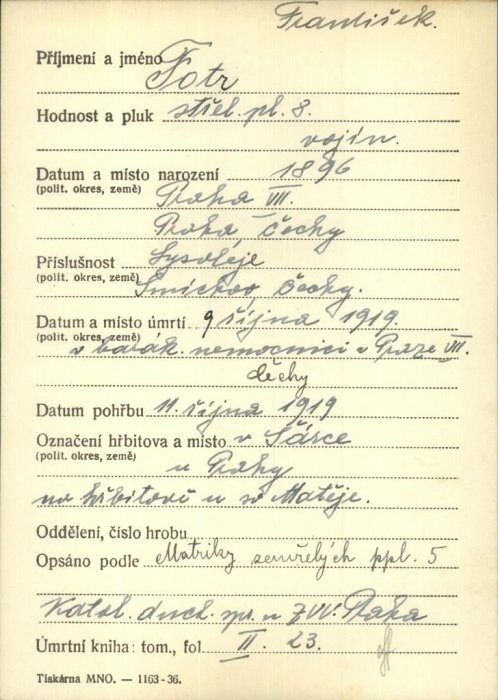 František.
Příjmení a jméno Fotr
Hodnost a pluk střel. pl. 8.
vojín.
Datum a místo narození 1896
(polit. okres, země) Praha VII.
Praha, Čechy
Příslušnost Lysoleje
(polit. okres, země) Smíchov, Čechy.
Datum a místo úmrtí 9 října 1919.
(polit. okres, země) v barák. nemocnici v Praze VII.
Čechy
Datum pohřbu 11. října 1919
Označení hřbitova a místo v Šárce
(polit. okres, země) u Prahy
na hřbitově u sv Matěje.
Oddělení, číslo hrobu
Opsáno podle Matriky zemřelých ppl. 5
Katol. duch. spr. u ZVV. Praha
Úmrtní kniha: tom., fol II. 23.
Tiskárna MNO. — 1163-36.